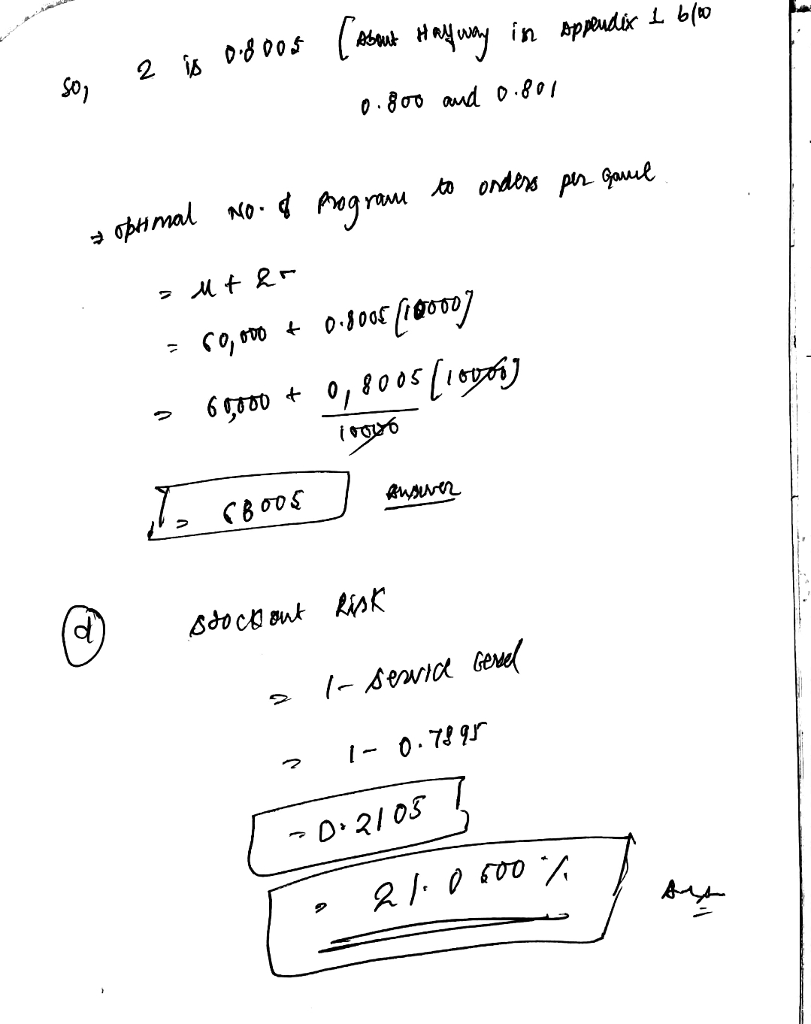 so, z is 0.8005 (About Halfway in Appendix 1 b/w
0.800 and 0.801
⇒ optimal No. of Program to orders per Game
= μ + zσ
= 60,000 + 0.8005 [10000]
= 60,000 + 0,8005 [10000]
10000
= 68005 Answer
(d) Stockout Risk
= 1 - Service level
= 1 - 0.7895
= 0.2105
= 21.0500 %
Ans